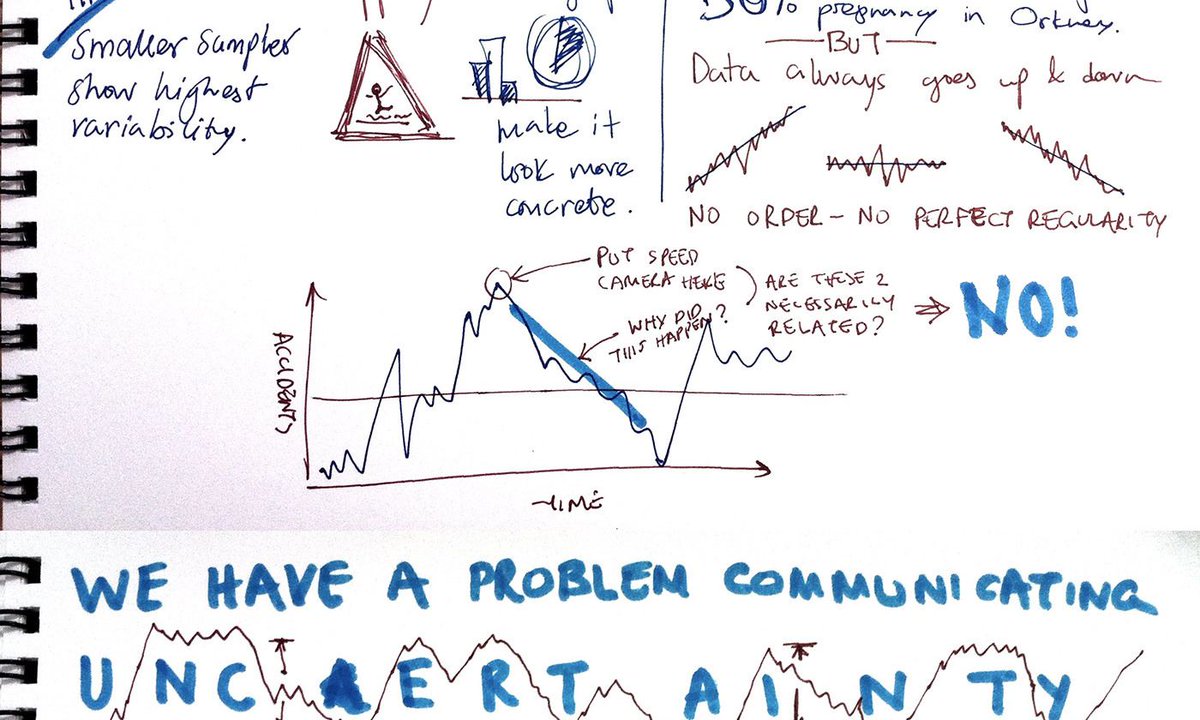 Smaller samples
show highest
variability.
make it
look more
concrete.
pregnancy in Orkney.
BUT
Data always goes up & down
NO ORDER - NO PERFECT REGULARITY
PUT SPEED
CAMERA HERE
WHY DID
THIS HAPPEN?
ARE THESE 2
NECESSARILY
RELATED?
⇒ NO!
ACCIDENTS
TIME
WE HAVE A PROBLEM COMMUNICATING
UNCERTAINTY